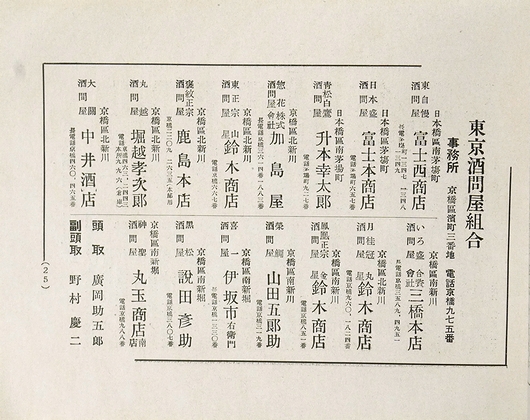 東京酒問屋組合
事務所 京橋區濱町三番地 電話京橋九七五番
日本橋區南茅場町
東自慢
酒問屋 富士西商店
日本橋區南茅場町
日本盛
酒問屋 富士本商店
日本橋區茅場町
青松白鷹
酒問屋 升本幸太郎
京橋區北新川
惣花 株式會社
酒問屋 加島屋
京橋區北新川
東正宗
酒問屋 山星 鈴木商店
京橋區北新川
褒紋正宗
酒問屋 鹿島本店
京橋區北新川
丸越
酒問屋 堀越孝次郎
京橋區北新川
大關
酒問屋 中井酒店
京橋區南新川
いろ盛 合資會社
酒問屋 三橋本店
京橋區北新川
月桂冠
酒問屋 丸星 鈴木商店
京橋區南新川
鳳凰正宗
酒問屋 金星 鈴木商店
京橋區南新川
榮鯛
酒問屋 山田五郎助
京橋區南新堀
喜一
酒問屋 伊坂市右衛門
京橋區南新堀
黒松
酒問屋 説田彦助
京橋區南新堀
神聖
酒問屋 丸玉商店
頭取 廣岡助五郎
副頭取 野村慶二
(25)